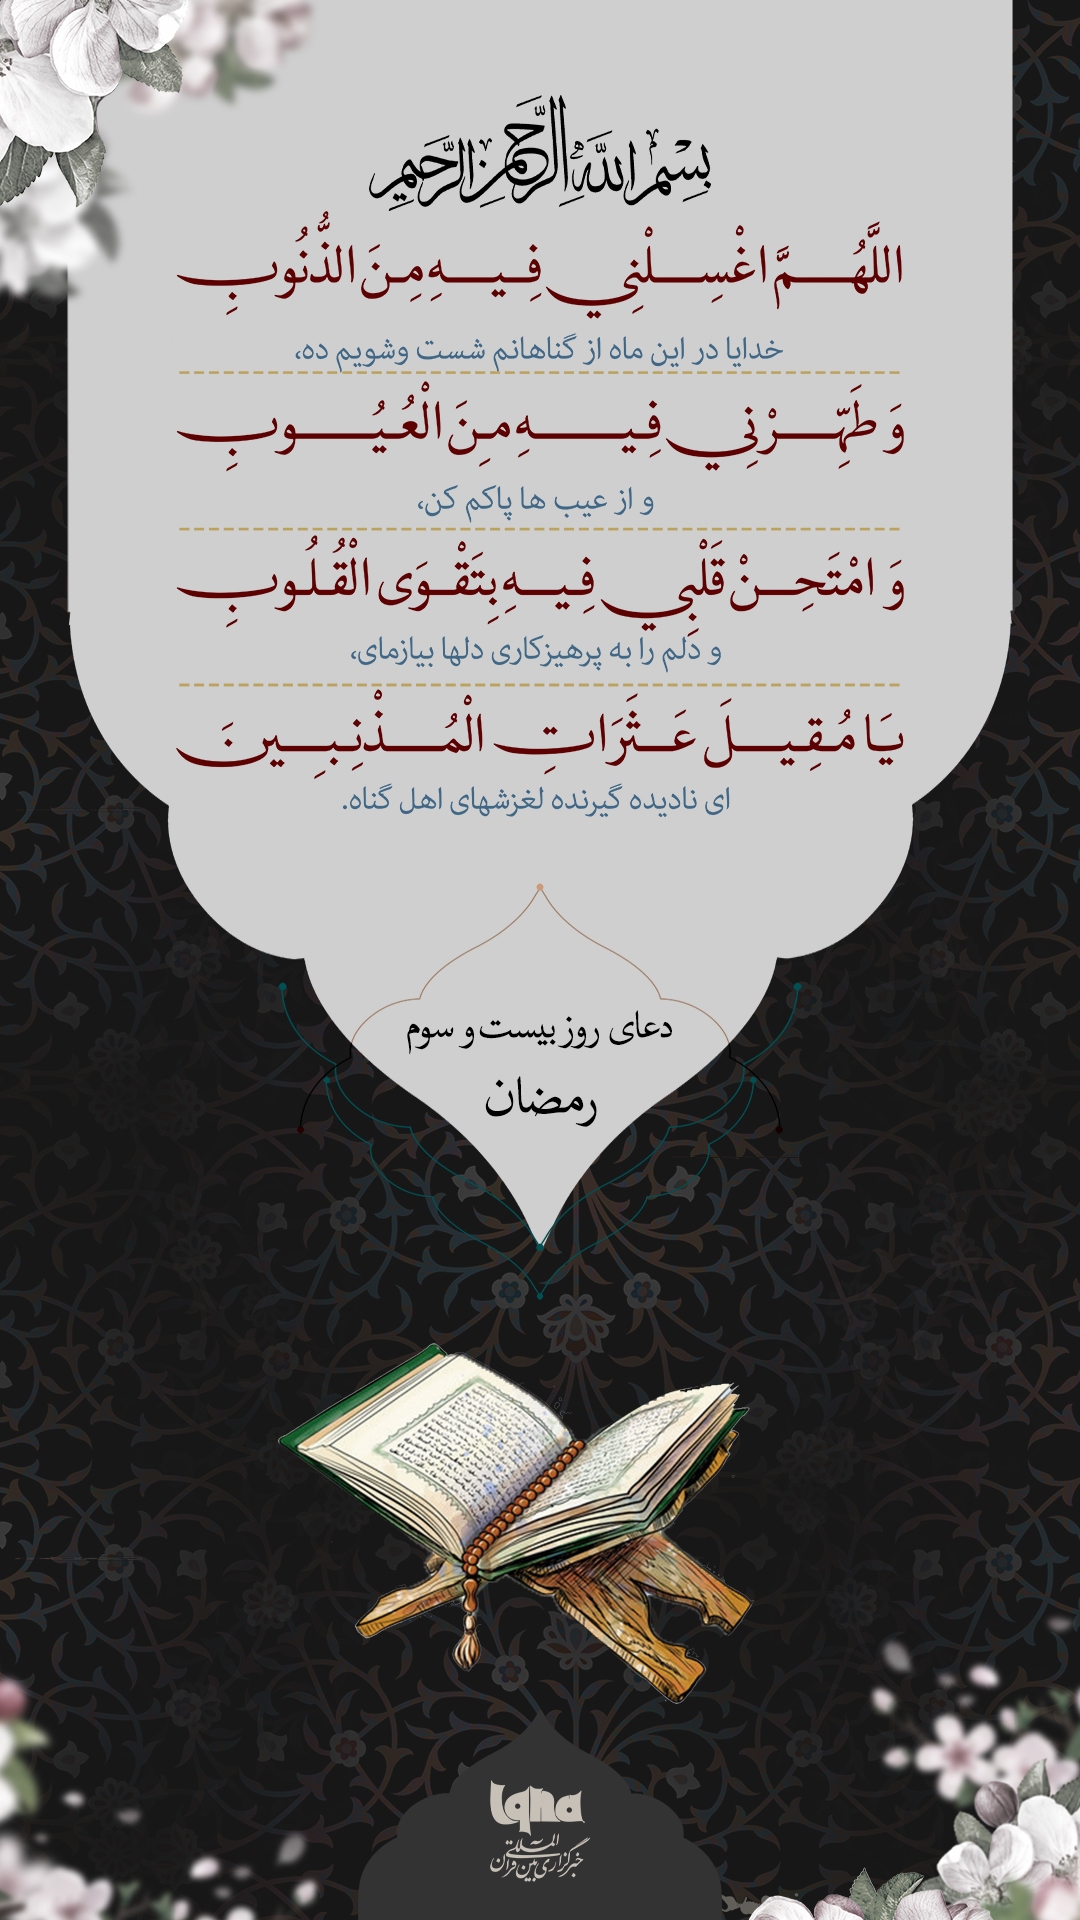 بِسْمِ اللَّهِ الرَّحْمَنِ الرَّحِيمِ
اللَّهُمَّ اغْسِلْنِي فِيهِ مِنَ الذُّنُوبِ
خدایا در این ماه از گناهانم شست وشویم ده،
وَ طَهِّرْنِي فِيهِ مِنَ الْعُيُوبِ
و از عیب ها پاکم کن،
وَ امْتَحِنْ قَلْبِي فِيهِ بِتَقْوَى الْقُلُوبِ
و دلم را به پرهیزکاری دلها بیازمای،
يَا مُقِيلَ عَثَرَاتِ الْمُذْنِبِينَ
ای نادیده گیرنده لغزشهای اهل گناه.
دعای روز بیست و سوم
رمضان
iqna
خبرگزاری بین المللی قرآن